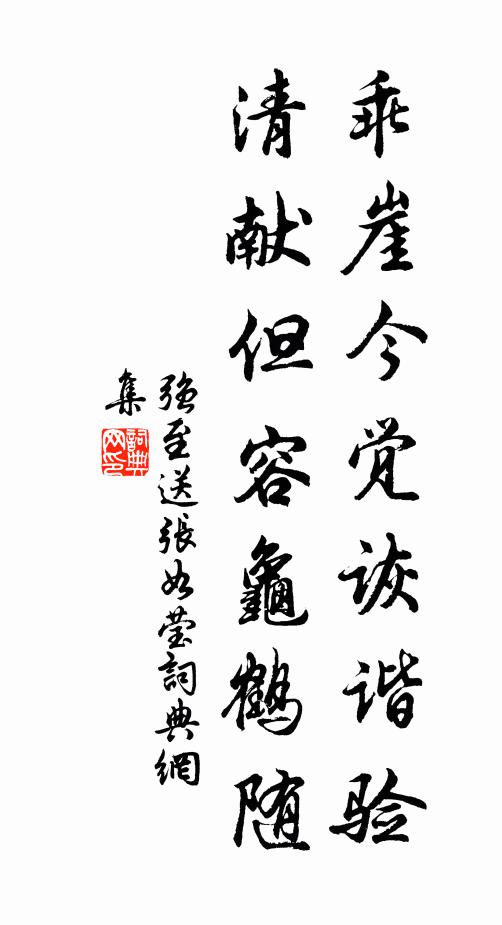 乖崖今觉诙谐验
清献但容龜鹤随
强至送張如莹詞典網
集
詞典
网印